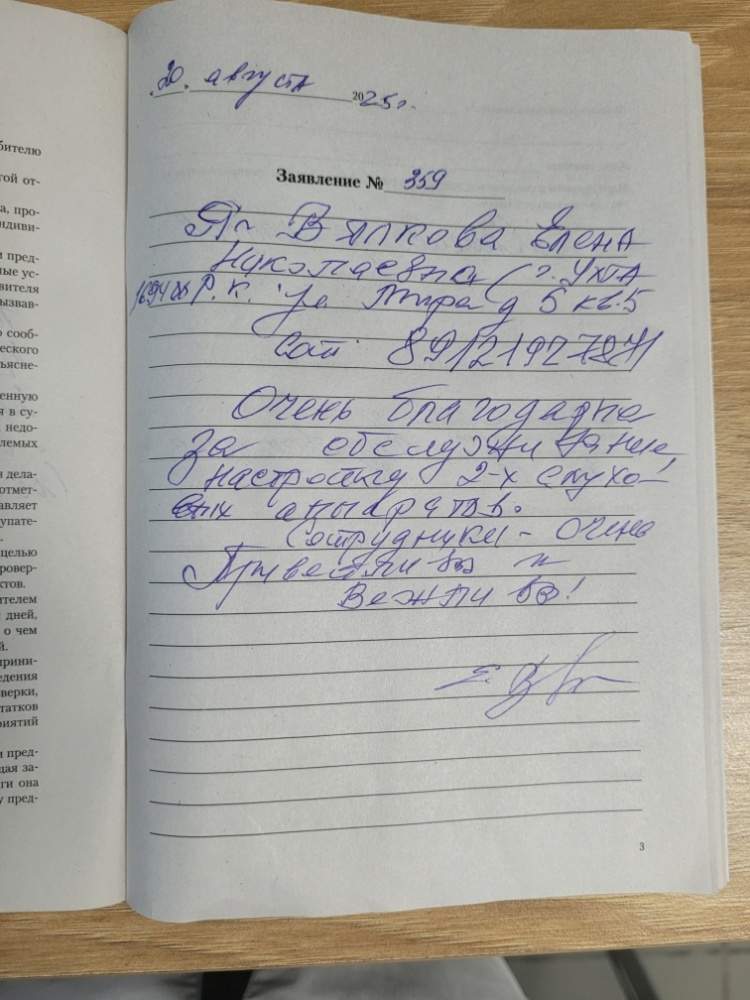 бителю
гой от-
а, про-
ндиви-
и пред-
ные ус-
вителя
вызвав-
о сооб-
еского
ъясне-
енную
я в су-
недо-
лемых
я дела-
отмет-
авляет
упате-
целью
ровер-
ктов.
ителем
дней,
о чем
й.
прини-
едения
верки,
татков
риятий
и пред-
дая за-
ги она
у пред-
20. августа 2025г.
Заявление № 359
Я Вялкова Елена
Николаевна (г. Ухта
Р.К. ул Мира д 5 кв.5
Сот.
Очень благодарна
за обслуживание,
настройку 2-х слухо-
вых аппаратов.
Сотрудники - очень
Приветливы и
Вежливы!
3